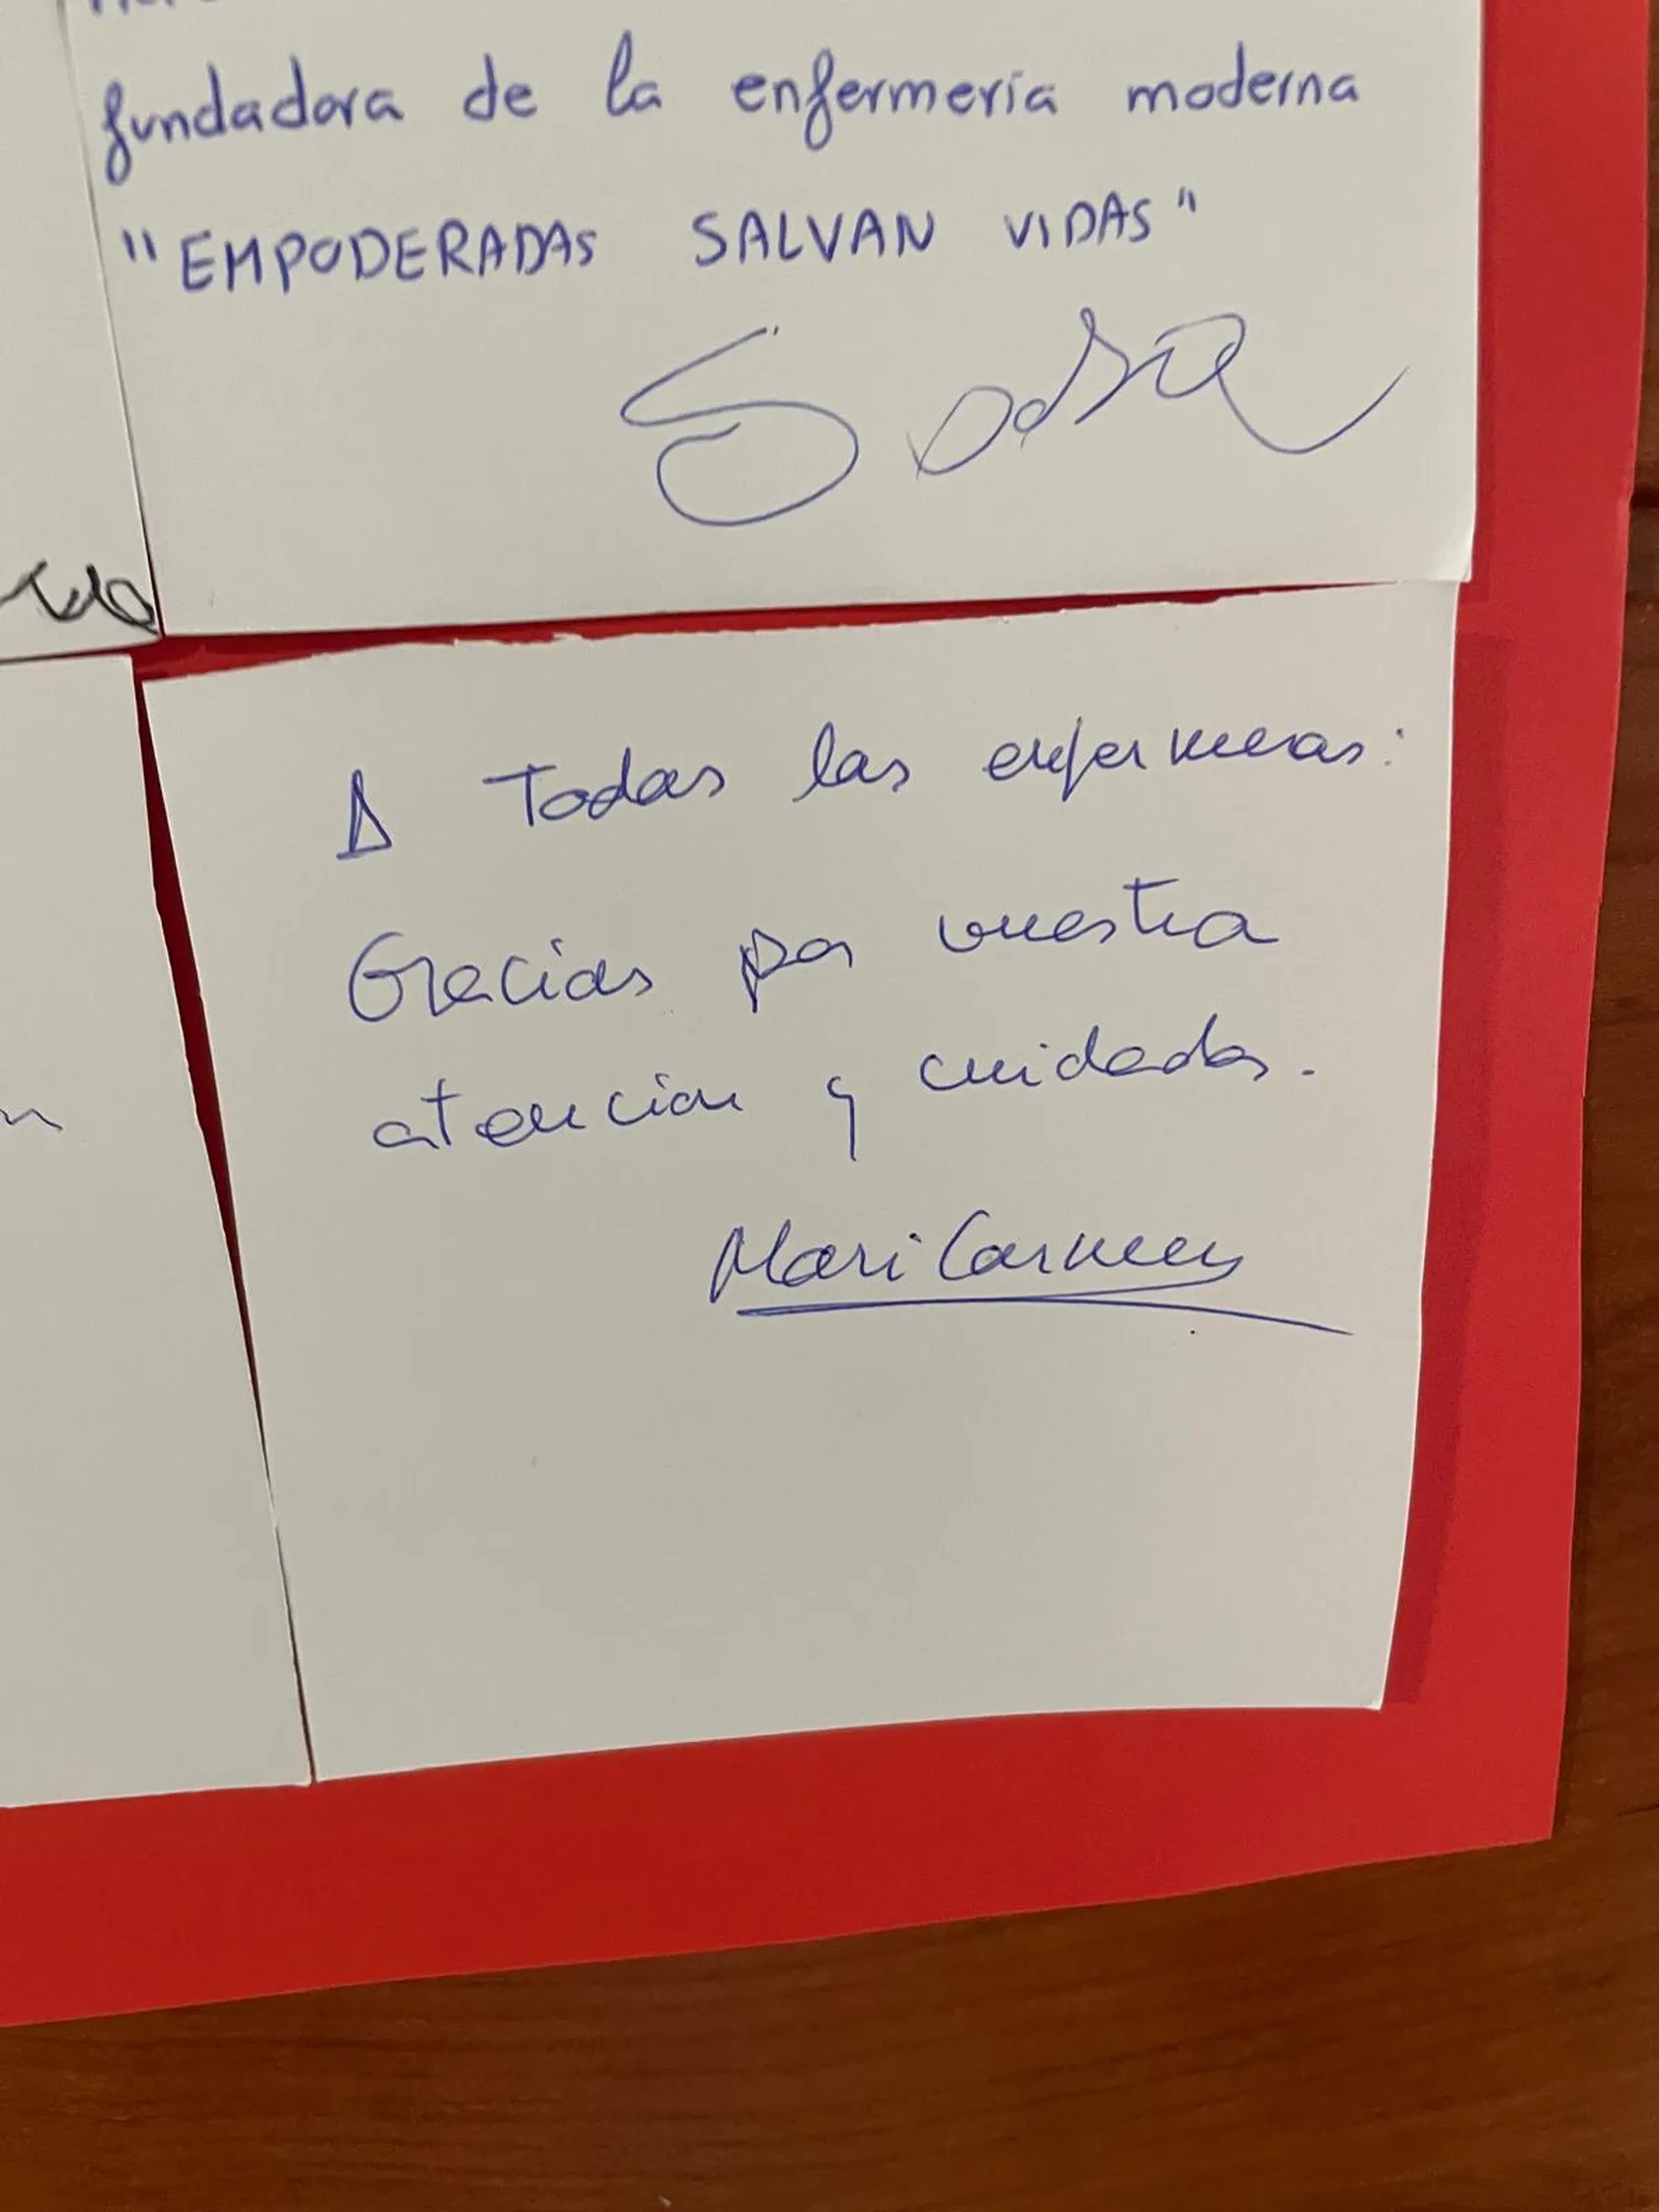 fundadora de la enfermería moderna
"EMPODERADAS SALVAN VIDAS"
A Todas las enfermeras:
Gracias por vuestra
atención y cuidados.
Mari Carmen